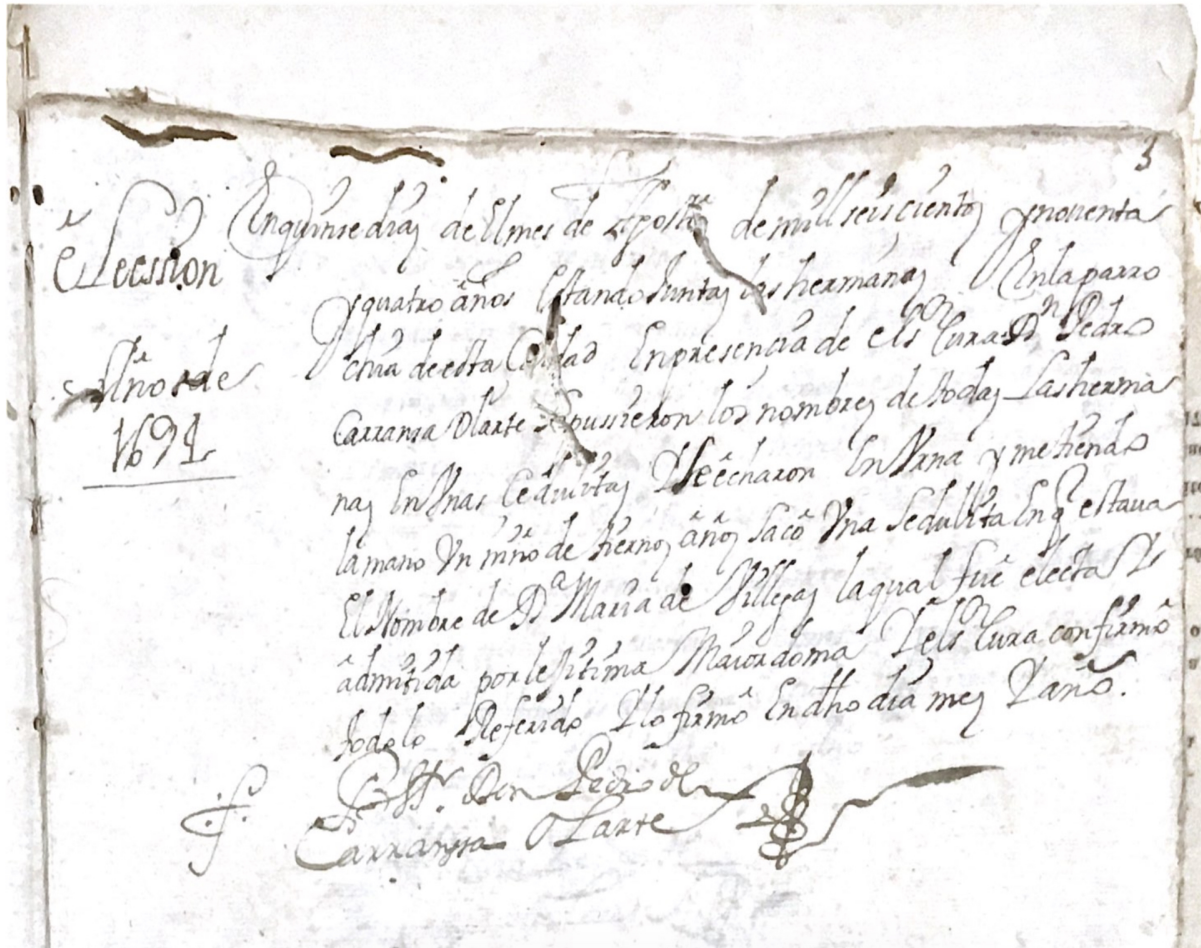 3
eleccsion
Años de
1694
En quinse dias de El mes de Agosto de mill seiscientos y noventa
y quatro años Estando Juntas las hermanas En la parro
chia de esta Ciudad En presencia de el Sr Cura Dn Pedro
Carransa Olarte pussieron los nombres de todas Las herma
nas En Vnas Cedulitas Y Se echaron En Vrna y metiendo
la mano Vn niño de tiernos años sacò Vna Sedulita En q estaua
El Nombre de Da Maria de Villegas la qual fuè electa Y
admitida por lejitima Maiordoma Y el Sr Cura confirmò
todo lo Referido Y lo firmò En dho dia mes Y año.
Don Pedro de
Carransa OLarte